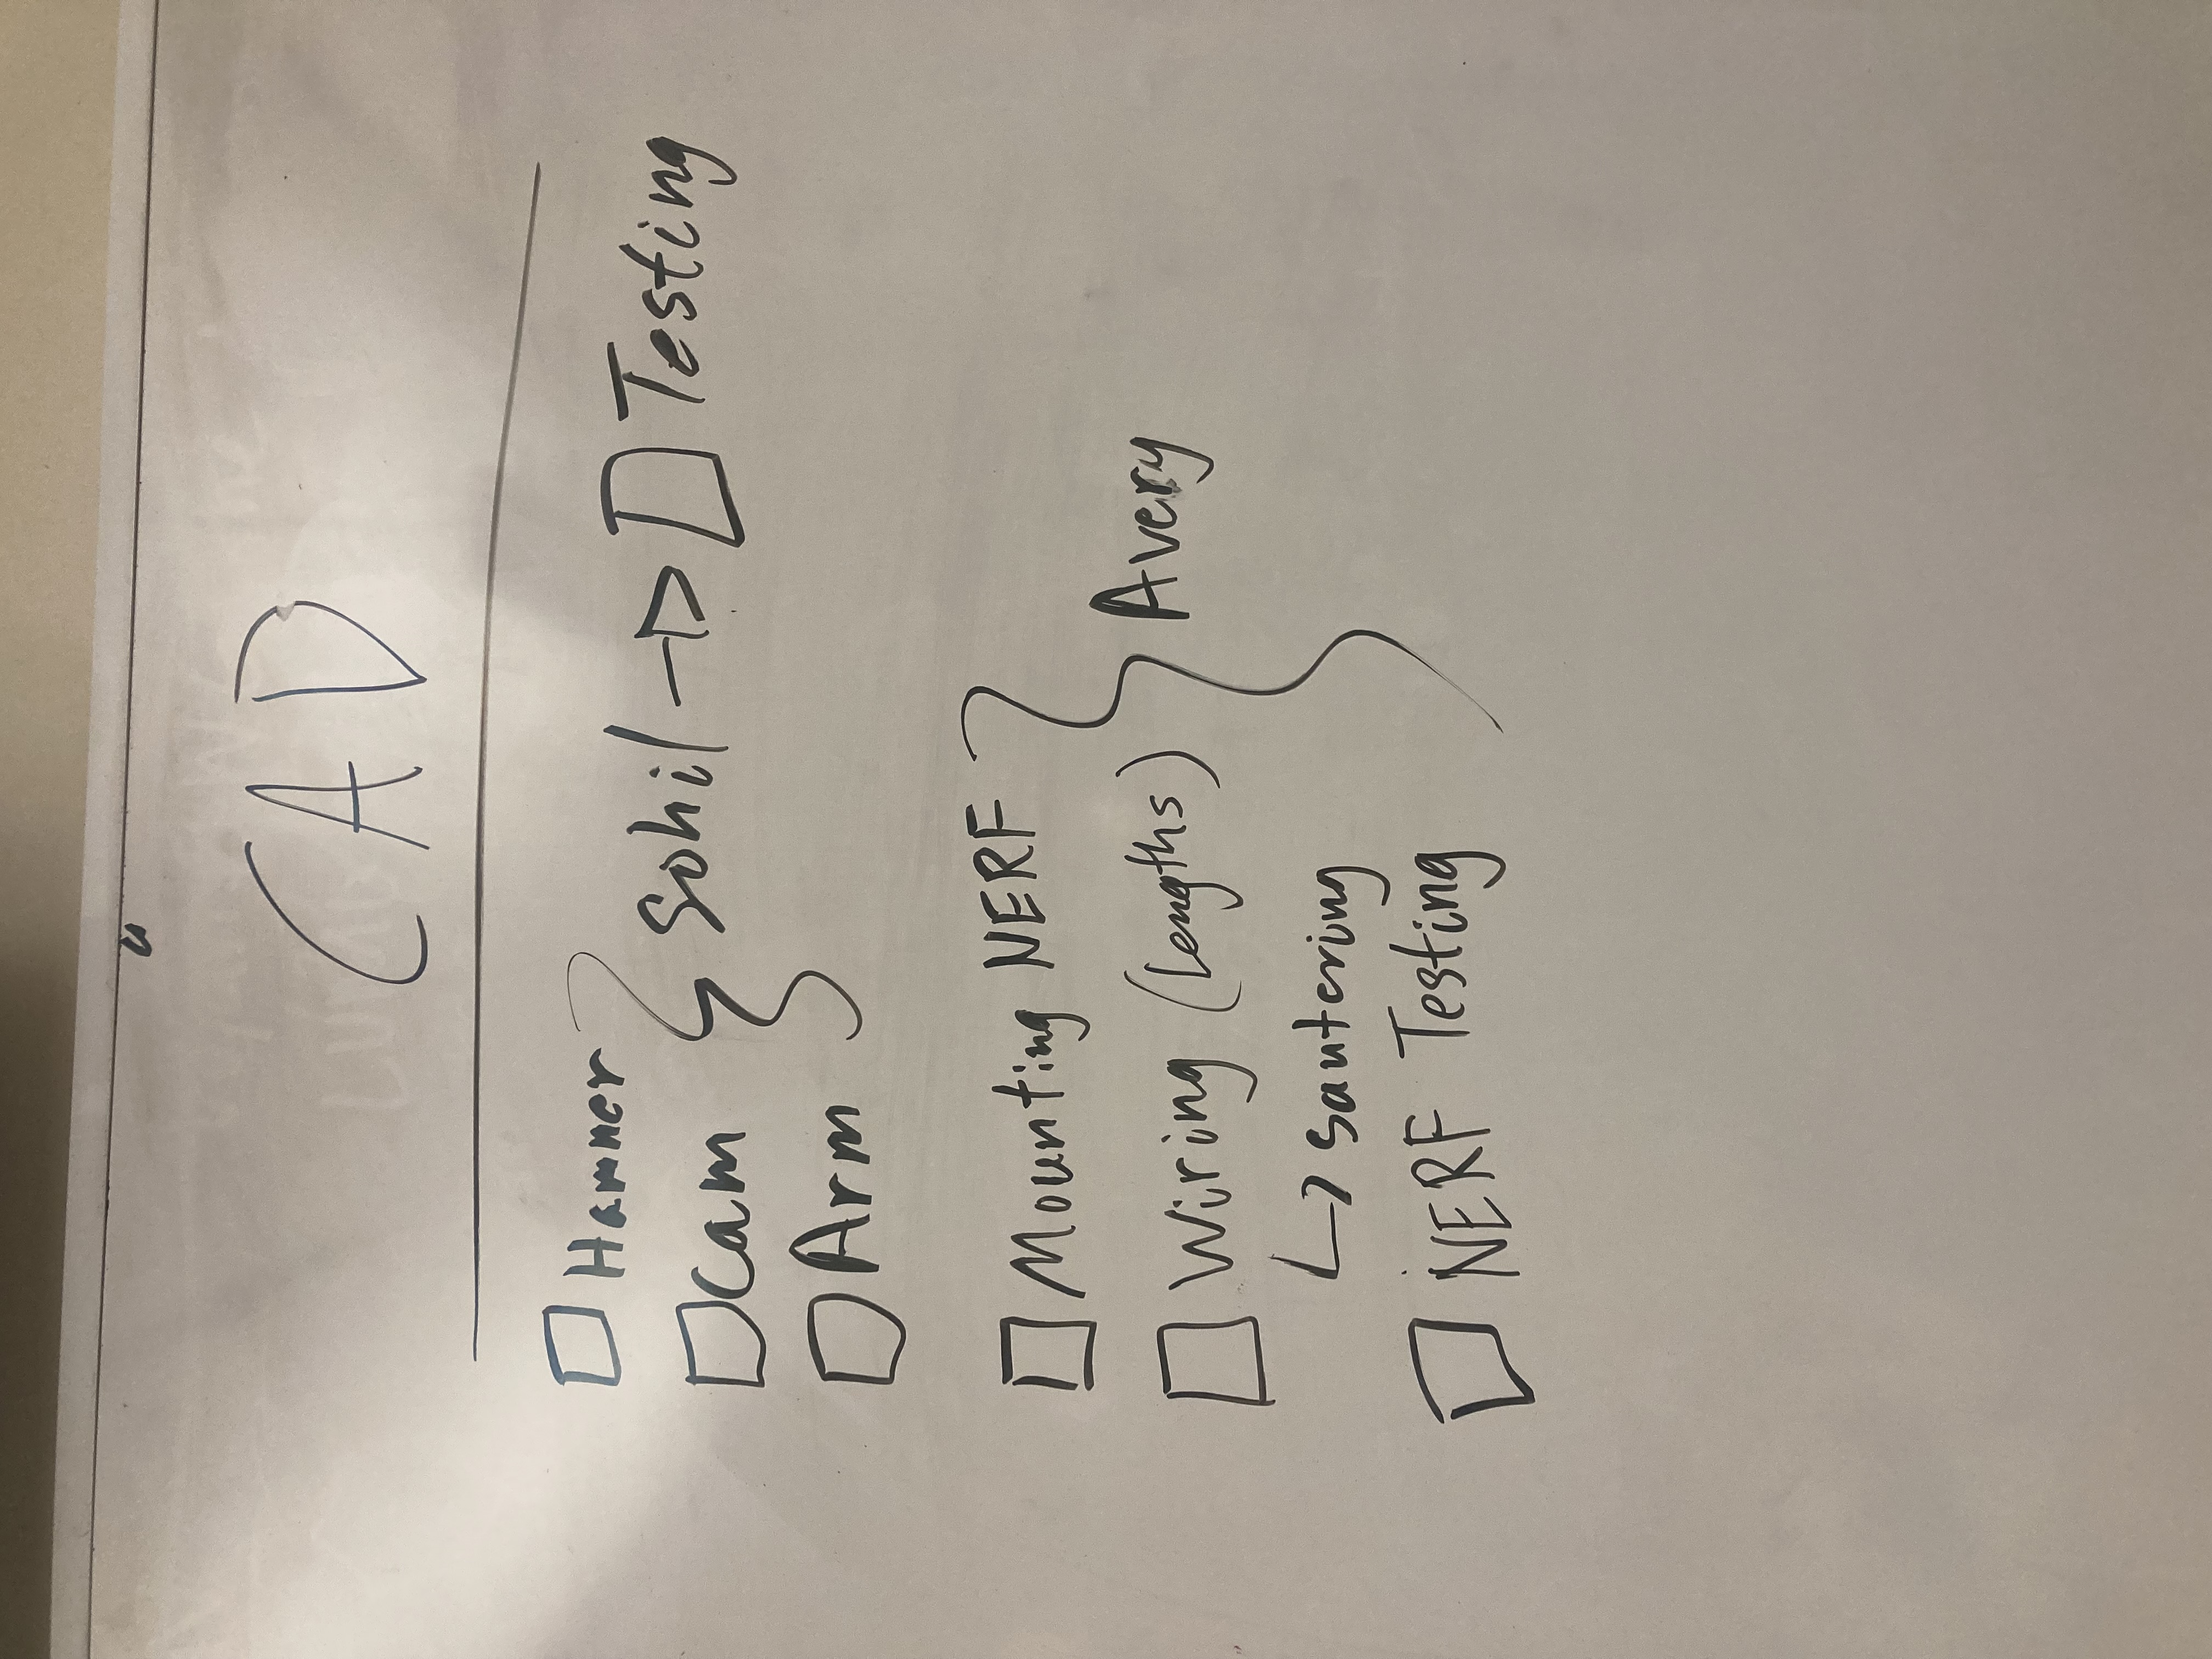 CAD
Hammer
Cam
Arm
Sohil → Testing
Mounting NERF
Wiring (Lengths)
↳ sautering
NERF Testing
Avery